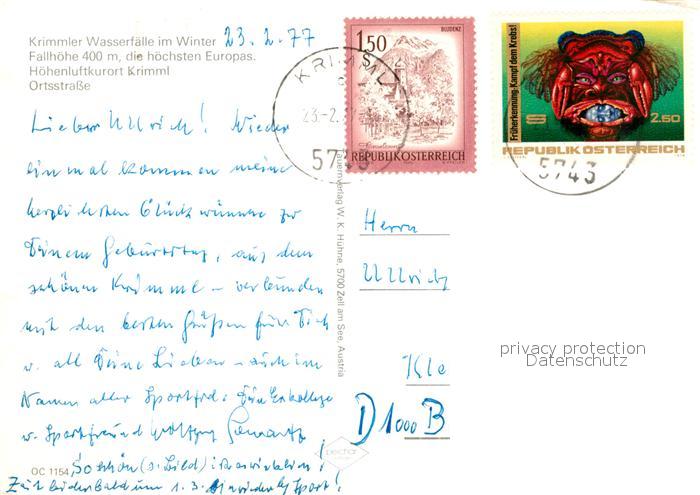 Krimmler Wasserfälle im Winter 23.2.77
Fallhöhe 400 m, die höchsten Europas.
Höhenluftkurort Krimml
Ortsstraße
Lieber Ullrich! Wieder
einmal kommen meine
herzlichsten Glückwünsche zu
Deinem Geburtstag, aus dem
schönen Krimml – verbunden
mit den besten Grüßen für Dich
u. all Deine Lieben – auch im
Namen aller Sportfrd. Dein
u. Sportfreund Wolfgang
So schön (s. Bild) ist es wirklich!
Zeit leider bald um 1.3. wieder Sport!
OC 1154
Tauernverlag W. K. Huhne, 5700 Zell am See, Austria
1.50
BLUDENZ
REPUBLIK ÖSTERREICH
KRIMML
23.-2.
5743
Früherkennung-Kampf dem Krebs!
S 2.50
REPUBLIK ÖSTERREICH
5743
Herrn
Ullrich
Kle
D 1000 B
privacy protection
Datenschutz